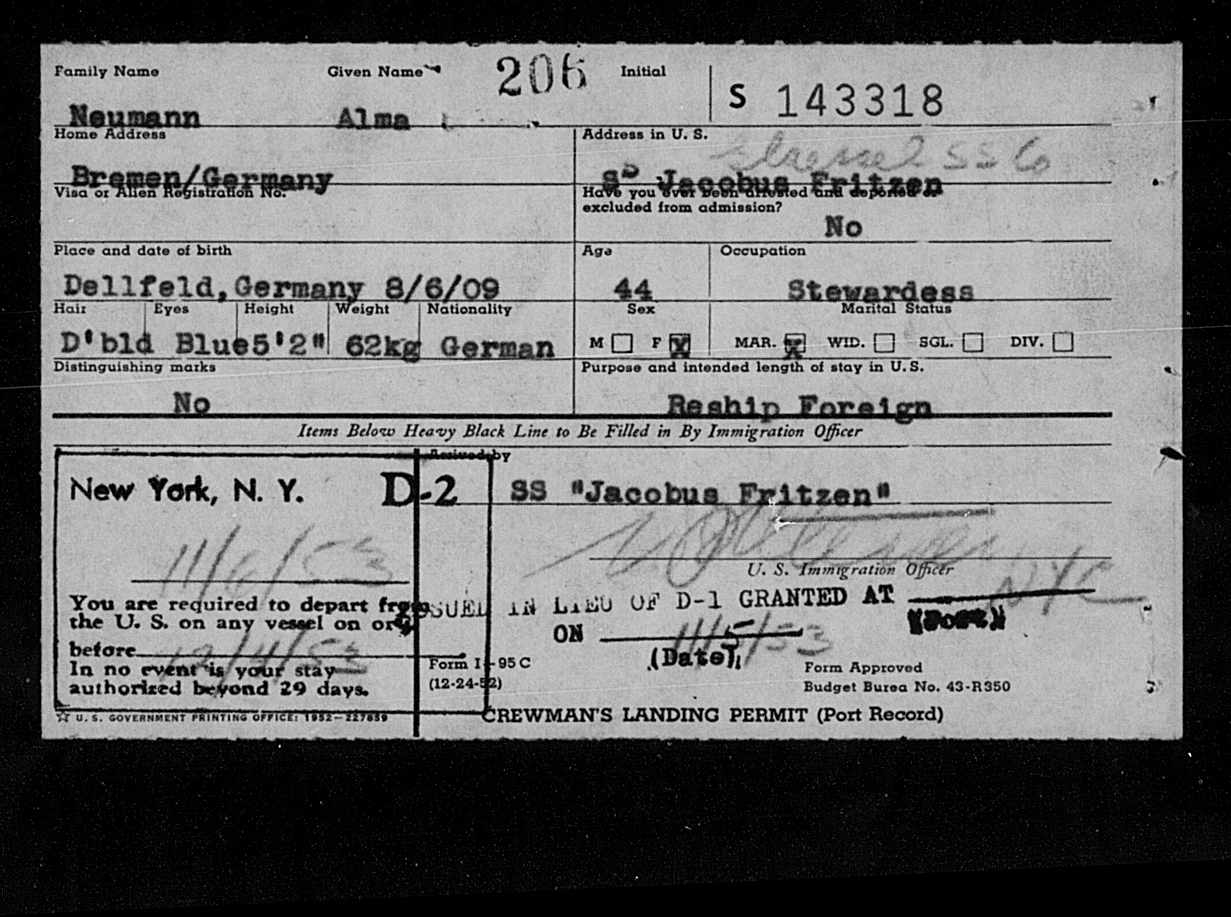 Family Name Given Name 206 Initial S 143318
Neumann Alma
Home Address Address in U. S.
Bremen/Germany SS Jacobus Fritzen
Visa or Alien Registration No. Have you ever been arrested and deported or
excluded from admission?
No
Place and date of birth Age Occupation
Dellfeld, Germany 8/6/09 44 Stewardess
Hair Eyes Height Weight Nationality Sex Marital Status
D'bld Blue 5'2" 62kg German M F X MAR. X WID. SGL. DIV.
Distinguishing marks Purpose and intended length of stay in U. S.
No Reship Foreign
Items Below Heavy Black Line to Be Filled in By Immigration Officer
Arrived by
New York, N. Y. D-2 SS "Jacobus Fritzen"
11/6/53
U. S. Immigration Officer
You are required to depart from
the U. S. on any vessel on or
before 12/4/53
In no event is your stay
authorized beyond 29 days.
ISSUED IN LIEU OF D-1 GRANTED AT NYC
(Port)
ON 11/5/53
(Date)
Form I-95 C
(12-24-52)
Form Approved
Budget Burea No. 43-R350
☆ U. S. GOVERNMENT PRINTING OFFICE: 1952—227859
CREWMAN'S LANDING PERMIT (Port Record)